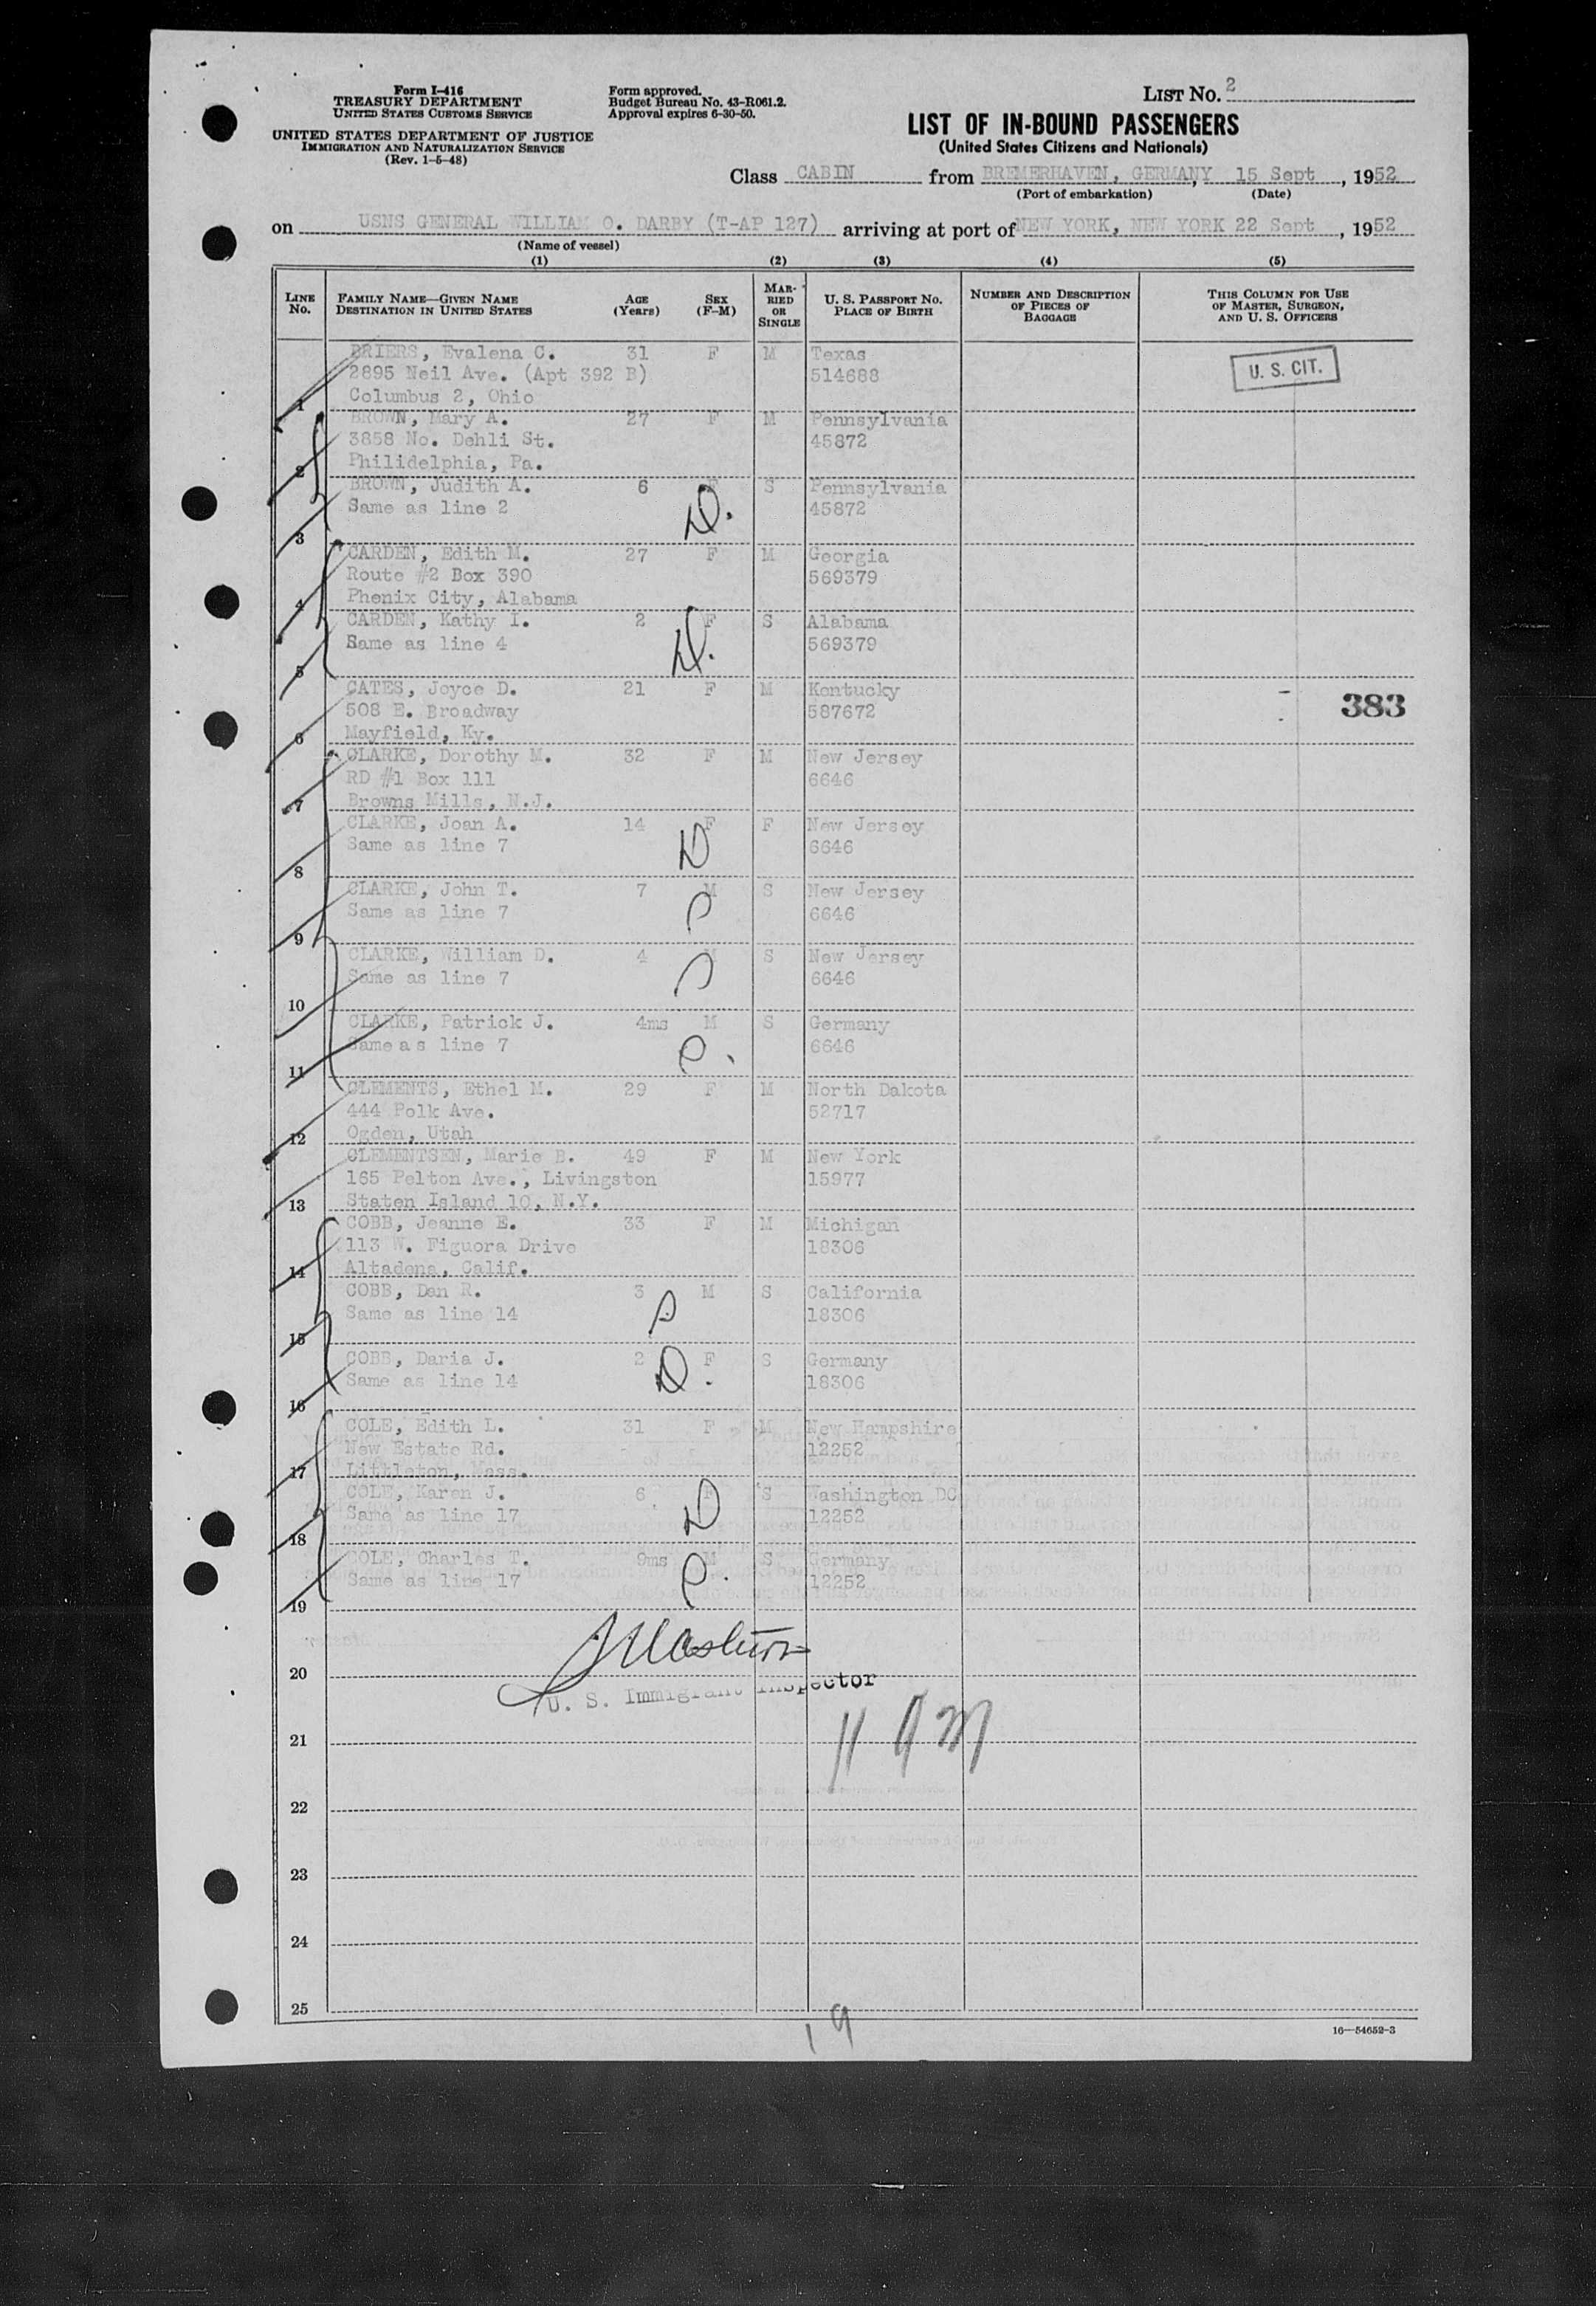 Form I-416
TREASURY DEPARTMENT
UNITED STATES CUSTOMS SERVICE
UNITED STATES DEPARTMENT OF JUSTICE
IMMIGRATION AND NATURALIZATION SERVICE
(Rev. 1-5-48)
Form approved.
Budget Bureau No. 43-R061.2.
Approval expires 6-30-50.
LIST No. 2
LIST OF IN-BOUND PASSENGERS
(United States Citizens and Nationals)
Class CABIN from BREMERHAVEN, GERMANY, 15 Sept, 1952
(Port of embarkation) (Date)
on USNS GENERAL WILLIAM O. DARBY (T-AP 127) arriving at port of NEW YORK, NEW YORK 22 Sept, 1952
(Name of vessel)
(1) (2) (3) (4) (5)
LINE No. FAMILY NAME—GIVEN NAME DESTINATION IN UNITED STATES AGE (Years) SEX (F-M) MARRIED OR SINGLE U. S. PASSPORT No. PLACE OF BIRTH NUMBER AND DESCRIPTION OF PIECES OF BAGGAGE THIS COLUMN FOR USE OF MASTER, SURGEON, AND U. S. OFFICERS
BRIERS, Evalena C. 31 F M Texas
2895 Neil Ave. (Apt 392 B) 514688 U. S. CIT.
1 Columbus 2, Ohio
BROWN, Mary A. 27 F M Pennsylvania
3858 No. Dehli St. 45872
2 Philidelphia, Pa.
BROWN, Judith A. 6 F S Pennsylvania
Same as line 2 D. 45872
3
CARDEN, Edith M. 27 F M Georgia
Route #2 Box 390 569379
4 Phenix City, Alabama
CARDEN, Kathy I. 2 F S Alabama
Same as line 4 D. 569379
5
CATES, Joyce D. 21 F M Kentucky
508 E. Broadway 587672 383
6 Mayfield, Ky.
CLARKE, Dorothy M. 32 F M New Jersey
RD #1 Box 111 6646
7 Browns Mills, N.J.
CLARKE, Joan A. 14 F F New Jersey
Same as line 7 D 6646
8
CLARKE, John T. 7 M S New Jersey
Same as line 7 6646
9
CLARKE, William D. 4 M S New Jersey
Same as line 7 6646
10
CLARKE, Patrick J. 4ms M S Germany
Same as line 7 6646
11
CLEMENTS, Ethel M. 29 F M North Dakota
444 Polk Ave. 52717
12 Ogden, Utah
CLEMENTSEN, Marie B. 49 F M New York
165 Pelton Ave., Livingston 15977
13 Staten Island 10, N.Y.
COBB, Jeanne E. 33 F M Michigan
113 W. Figuora Drive 18306
14 Altadena, Calif.
COBB, Dan R. 3 M S California
Same as line 14 18306
15
COBB, Daria J. 2 F S Germany
Same as line 14 D. 18306
16
COLE, Edith L. 31 F M New Hampshire
New Estate Rd. 12252
17 Littleton, Mass.
COLE, Karen J. 6 F S Washington DC
Same as line 17 D 12252
18
COLE, Charles T. 9ms M S Germany
Same as line 17 12252
19
20
U. S. Immigrant Inspector
21
22
23
24
25
19
16—54652-3